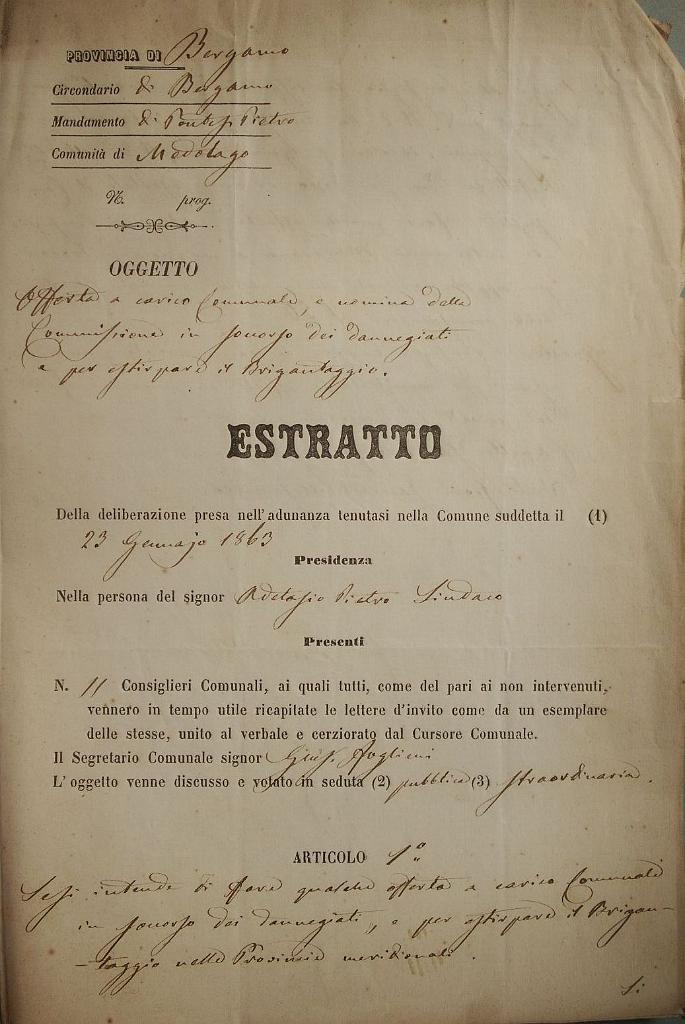 PROVINCIA DI Bergamo
Circondario di Bergamo
Mandamento di Ponte S. Pietro
Comunità di Medolago
N. prog.
OGGETTO
Offerta a carico Comunale, e nomina della
Commissione in soccorso dei dannegiati
e per estirpare il Brigantaggio.
ESTRATTO
Della deliberazione presa nell'adunanza tenutasi nella Comune suddetta il (1)
23 Gennajo 1863
Presidenza
Nella persona del signor Adelasio Pietro Sindaco
Presenti
N. 11 Consiglieri Comunali, ai quali tutti, come del pari ai non intervenuti,
vennero in tempo utile ricapitate le lettere d'invito come da un esemplare
delle stesse, unito al verbale e cerziorato dal Cursore Comunale.
Il Segretario Comunale signor Gius.
L'oggetto venne discusso e votato in seduta (2) pubblica (3) straordinaria.
ARTICOLO 1º
Se si intende di fare qualche offerta a carico Comunale
in soccorso dei dannegiati, e per estirpare il Brigan-
-taggio nelle Provincie meridionali.
Si